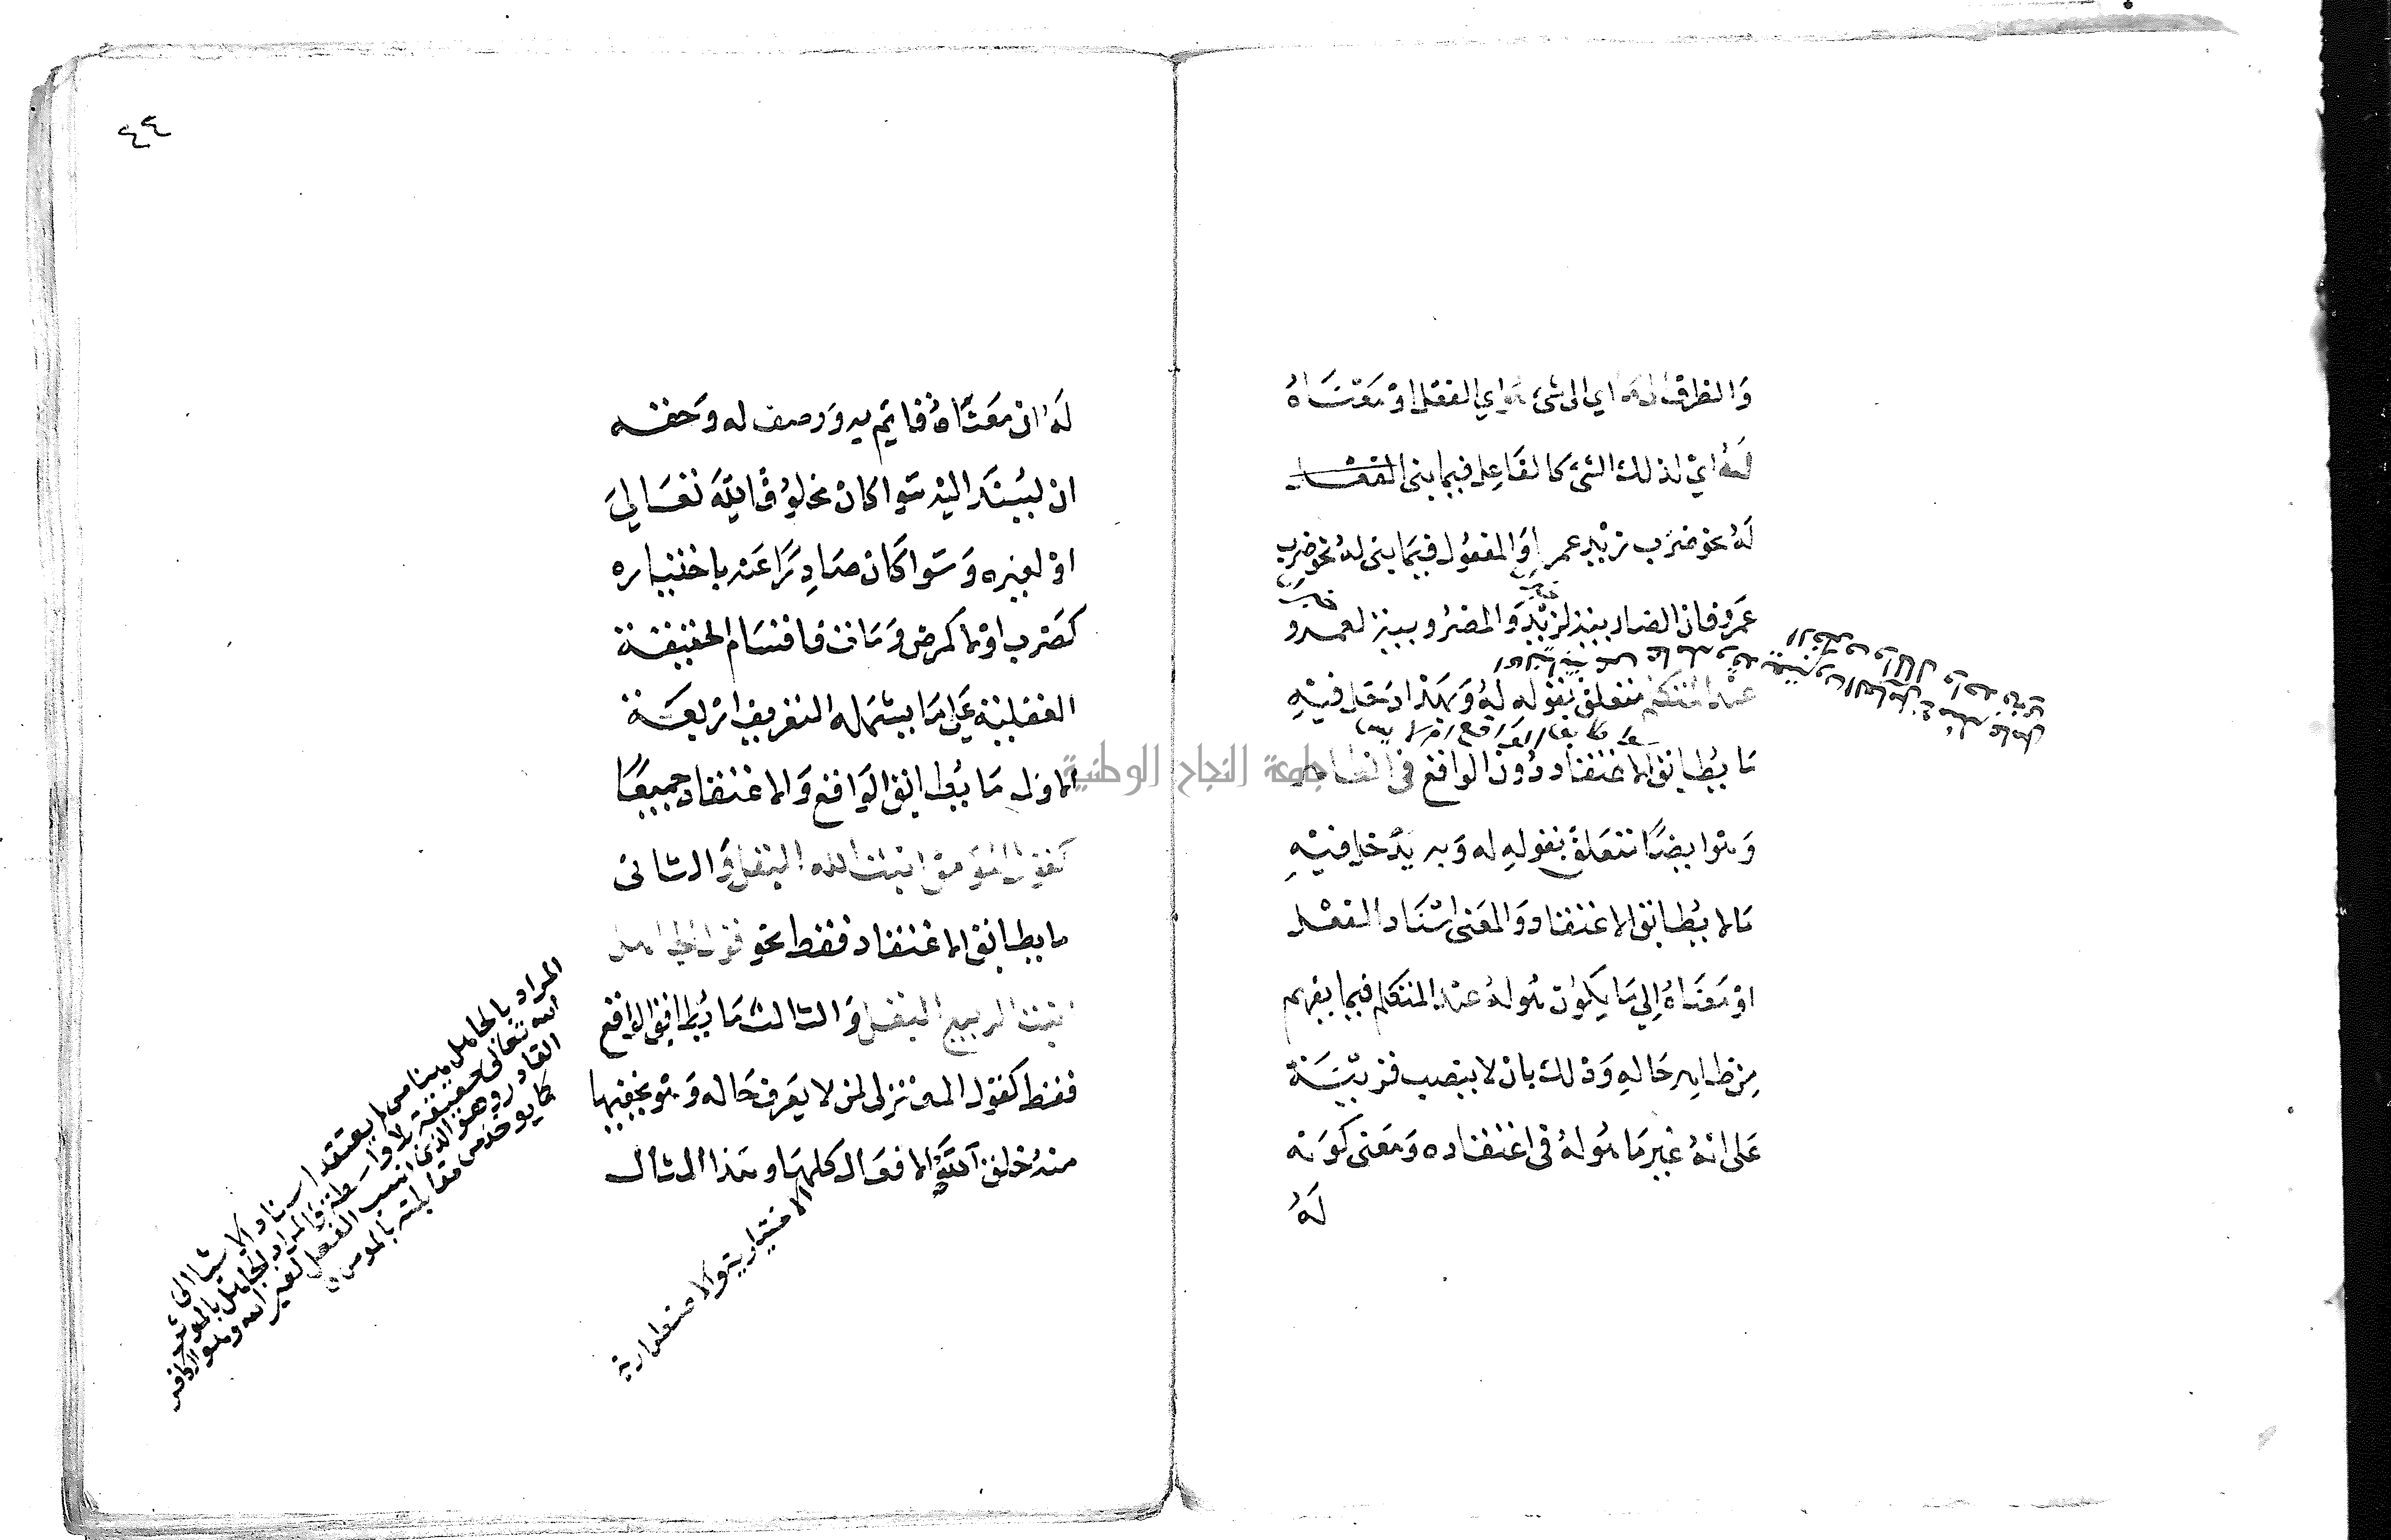 والظرف له اي الى شئ هو اي الفعل او معناه
له اي لذلك الشئ كالفاعل فيما بنى الفعل
له نحو ضرب زيد عمرا والمفعول فيما بنى له نحو ضرب
عمرو فان الضاربية لزيد والمضروبية لعمرو
عند المتكلم متعلق بقوله له وبهذا دخل فيه
ما يطابق الاعتقاد دون الواقع في الظاهر
وهو ايضا متعلق بقوله له وبه يدخل فيه
ما لا يطابق الاعتقاد والمعنى اسناد الفعل
او معناه الي ما يكون هو له عند المتكلم فيما يفهم
من ظاهر حاله وذلك بان لا ينصب قرينة
على انه غير ما هو له في اعتقاده ومعنى كونه
له
٤٤
له ان معناه قايم به ووصف له وحقه
ان يسند اليه سوا كان مخلوقا لله تعالي
او لغيره وسوا كان صادرا عنه باختياره
كضرب او لا كمرض ومات فاقسام الحقيقة
العقلية على ما يشمله التعريف اربعة
الاول ما يطابق الواقع والاعتقاد جميعا
كقول المؤمن انبت الله البقل والثاني
ما يطابق الاعتقاد فقط نحو قول الجاهل
انبت الربيع البقل والثالث ما يطابق الواقع
فقط كقول المعتزلي لمن لا يعرف حاله وهو يخفيها
منه خلق الله الافعال كلها وهذا المثال
الاختيارية والاضطرارية
المراد بالجاهل هنا من يعتقد اسناد الاشيا الى
الله تعالى حقيقة بلا واسطة والمراد بالجاهل بالموثر
القادر وهو الذي انسب الفعل لغير الله وهو الكافر
كما يوخذ من مقابلته بالمومن
جامعة النجاح الوطنية